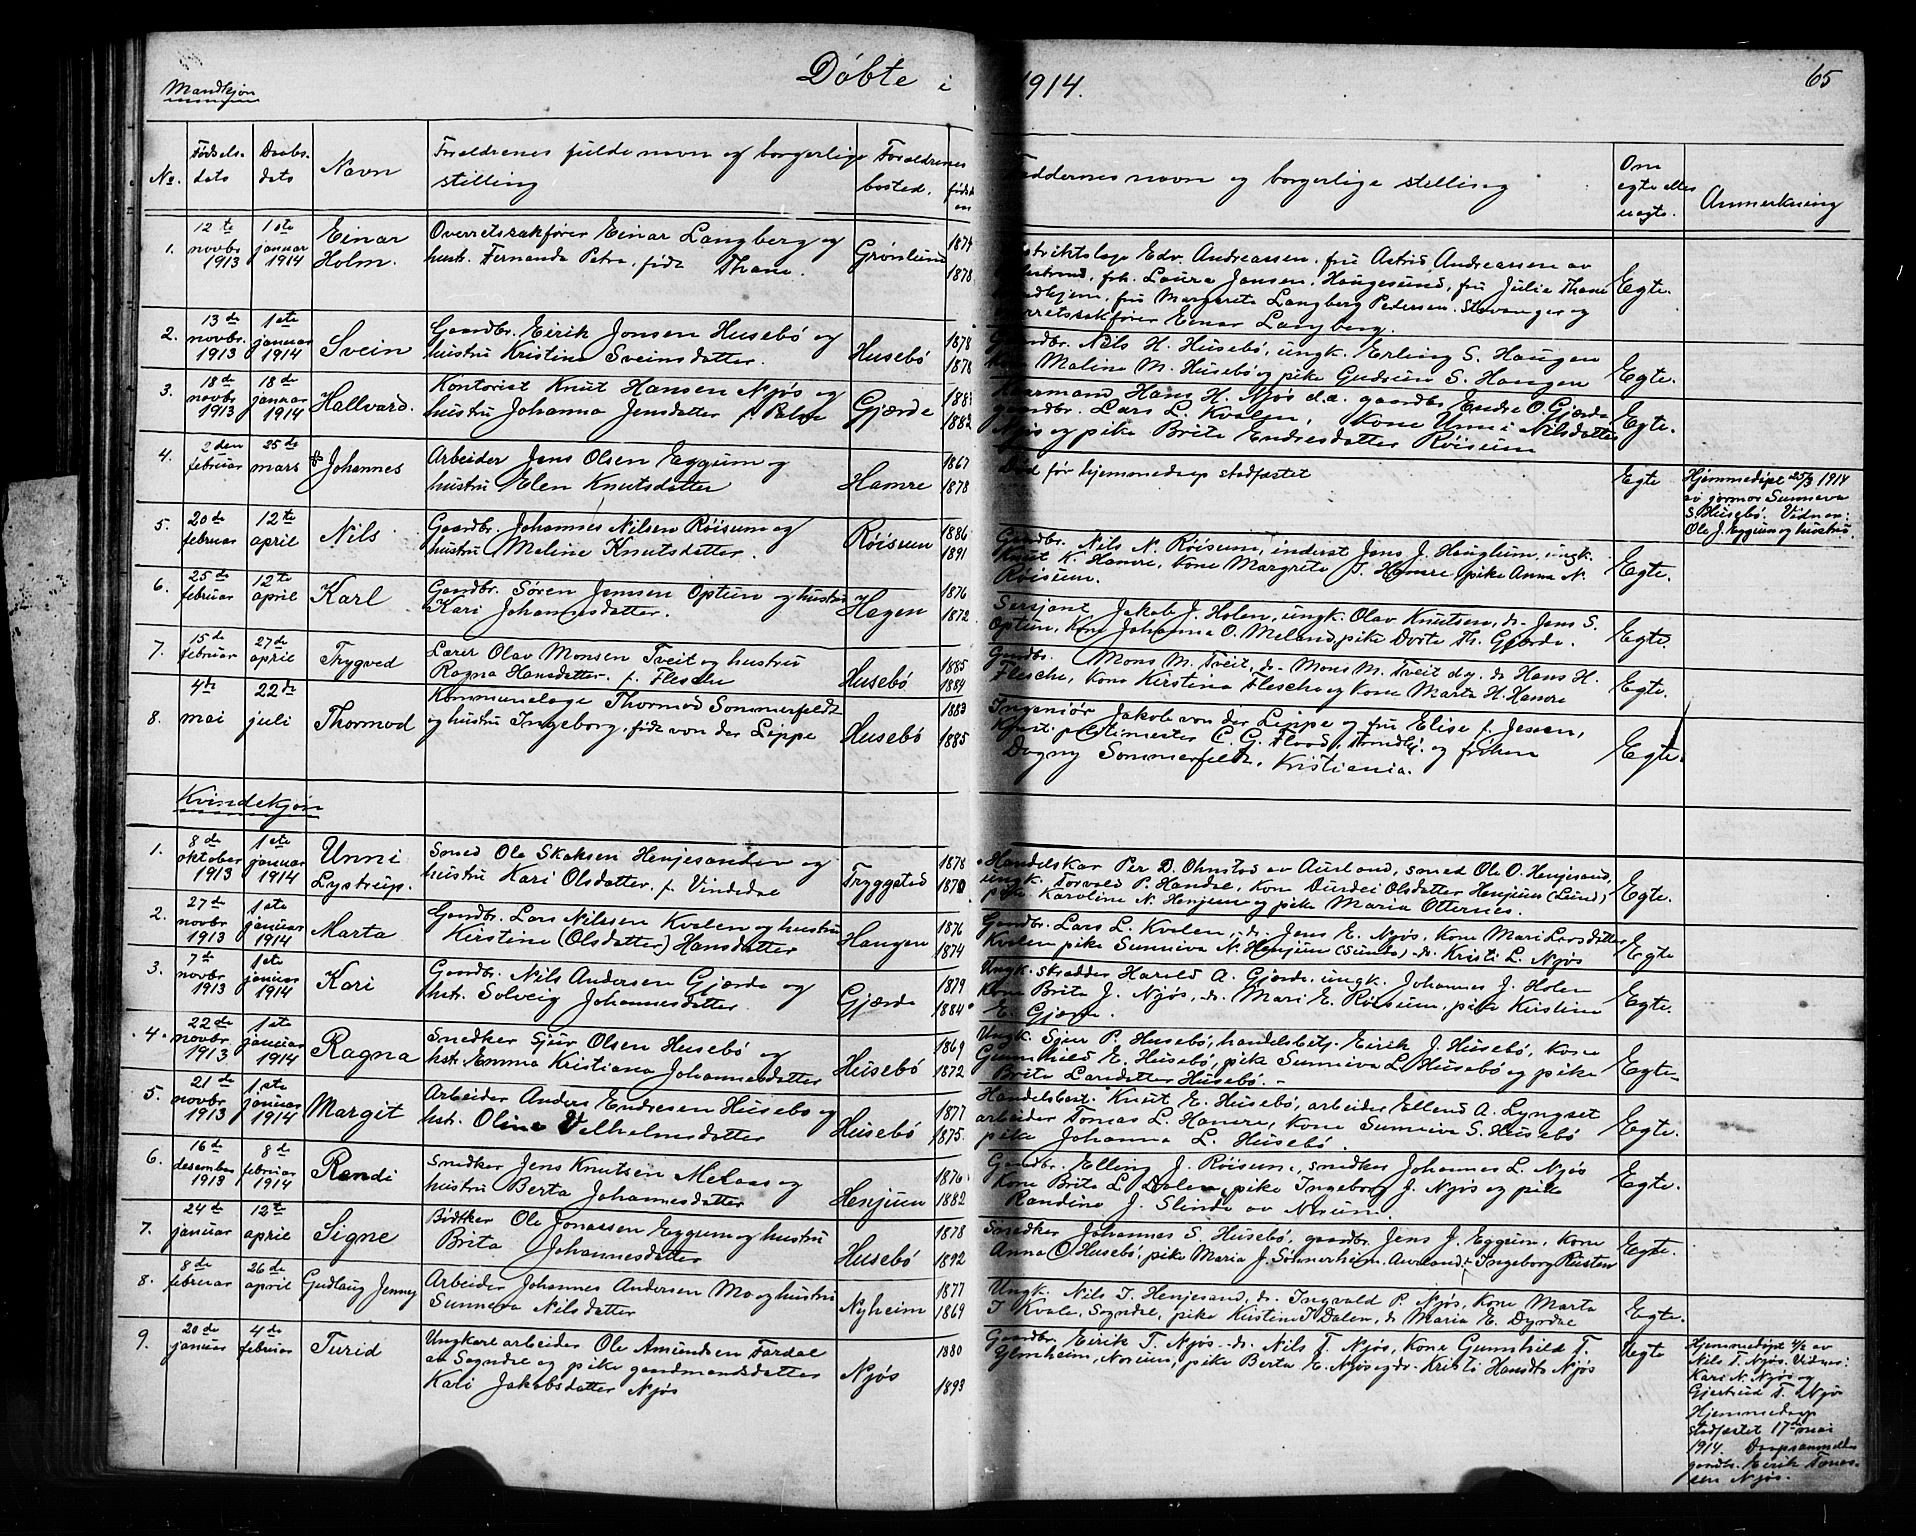 Døbte i 1914.
65
Mandkjøn
No.
Fødsels-
dato
Daabs-
dato
Navn
Forældrenes fulde navn og borgerlige
stilling
Forældrenes
bosted.
født
Faddernes navn og borgerlige stilling
Om
egte eller
uegte.
Anmerkning
1.
12te novbr 1913
1ste januar 1914
Einar
Holm.
Overretssakfører Einar Langberg og
hustr. Fernanda Petra, født Thane.
Grønlund
1874
1878
Distriktslæge Edv. Andreassen, fru Astrid Andreassen av
frk. Laura Jansen, Haugesund, fru Julie Thane
fru Margareta Langberg Pedersen Stavanger og
overretssakfører Einar Langberg.
Egte.
2.
13de novbr. 1913
1ste januar 1914
Svein
Gaardbr. Eirik Jonsen Husebø og
hustru Kristina Sveinsdatter.
Husebø
1878
1878
Gaardbr. Nils H. Husebø, ungk. Erling S. Haugen
Malene M. Husebø og pike Gudrun S. Haugen
Egte.
3.
18de novbr 1913
18de januar 1914
Hallvard.
Kontorist Knut Hansen Njøs og
hustru Johanna Jensdatter f.
Gjærde
1882
Kaarmand Hans H. Njøs d.æ. gaardbr. Endre O. Gjærde
gaardbr. Lars L. Kvalen, Kone Unni Nilsdatter
Njøs og pike Brita Endresdatter Røisum
Egte.
4.
2den februar
25de mars
Johannes
Arbeider Jens Olsen Eggum og
hustru Elen Knutsdatter
Hamre
1867
1878
Død før hjemmedaap stadfæstet
Egte
Hjemmedøpt 25/3 1914
av jormor Sunneva
S. Husebø. Vidner:
Ole J. Eggum og hustru.
5.
20de februar
12te april
Nils
Gaardbr. Johannes Nilsen Røisum og
hustru Meline Knutsdatter.
Røisum
1886
1891
Gaardbr. Nils N. Røisum, inderst Jens J. Hauglum, ungk.
Knut K. Hamre, Kone Margrete J. Hamre pike Anna N.
Røisum.
Egte.
6.
25de februar
12te april
Karl
Gaardbr. Søren Jensen Optun og hustru
Kari Johannesdatter.
Hagen
1876
1872
Sersjant Jakob J. Holen, ungk. Olav Knutsen, do. Jens S.
Optun, Kone Johanna O. Meland, pike Dorte Th. Gjærde.
Egte
7.
15de februar
27de april
Trygved
Lærer Olav Monsen Tveit og hustru
Ragna Hansdatter f. Flesche
Husebø
1885
1884
Gaardbr. Mons M. Tveit, do. Mons M. Tveit d.y. do Hans H.
Flesche, Kone Kirstina Flesche og Kone Marta H. Hamre
Egte.
8.
4de mai
22de juli
Thormod
Kommunelæge Thormod Sommerfeldt
og hustru Ingeborg, født von der Lippe
Husebø
1883
1885
Ingeniør Jakob von der Lippe og fru Elise f. Jessen,
Konst. politimester C. G. Flood, Trondhj. og frøken
Dagny Sommerfeldt, Kristiania.
Egte.
Kvindekjøn
1.
8de oktober 1913
1ste januar 1914
Unni
Lystrup.
Smed Ole Skaksen Henjesanden og
hustru Kari Olsdatter, f. Vindedal
Tryggstad
1878
Handelskar Per D. Ohnstad av Aurland, smed Ole O. Henjesand,
ungk. Torvald P. Handal, Kone Olsdatter Henjum (Lund),
pike Karoline N. Henjum og pike Maria Otternes.
Egte.
2.
27de novbr 1913
1ste januar 1914
Marta
Gaardbr. Lars Nilssen Kvalen og hustru
Kirstine (Olsdatter) Hansdatter
Haugen
1876
1874
Gaardbr. Lars L. Kvalen, do. Jens E. Njøs, Kone Mari Larsdatter
Kvalen pike Sunneva N. Henjum (Sunde), do. Kristi L. Njøs
Egte
3.
7de novbr 1913
1ste januar 1914
Kari
Gaardbr. Nils Andersen Gjærde og
hstr. Solveig Johannesdatter.
Gjærde
1879
1884
Ungk. skrædder Harald A. Gjærde, ungk. Johannes J. Holen
Kone Brita J. Njøs, do. Mari E. Røisum, pike Kirstine
E. Gjærde.
Egte.
4.
22de novbr 1913
1ste januar 1914
Ragna
Snedker Sjur Olsen Husebø og
hstr. Emma Kristiana Johannesdatter
Husebø
1869
1872
Ungk. Sjur P. Husebø, handelsbetj. Eirik J. Husebø, Kone
Gunnhild E. Husebø, pike Sunneva L. Husebø og pike
Brita Larsdatter Husebø.
Egte
5.
21de novbr 1913
1ste januar 1914
Margit
Arbeider Anders Endresen Husebø og
hstr. Oline Vilhelmsdatter
Husebø
1877
1875.
Handelsbest. Knut E. Husebø, arbeider Ellend A. Lyngset
arbeider Tomas L. Hamre, Kone Sunneva S. Husebø
pike Johanna L. Husebø.
Egte.
6.
16de desember 1913
8de februar 1914
Randi
Snedker Jens Knutsen Melaas og
hustru Berta Johannesdatter
Henjum
1876
1882
Gaardbr. Elling J. Røisum, snedker Johannes L. Njøs
Kone Brita L. Dalen, pike Ingeborg J. Njøs og pike
Randine J. Slinde av Norum.
Egte.
7.
24de januar
12te april
Signe
Bødtker Ole Jonassen Eggum og hustru
Brita Johannesdatter
Husebø
1878
1872
Snedker Johannes S. Husebø, gaardbr. Jens J. Eggum, Kone
Anna O. Husebø, pike Maria J. Sønnerheim, Aurland, Ingeborg Rusten
Egte.
8.
8de februar
26de april
Gudlaug Jenny
Arbeider Johannes Andersen Mo og hustru
Sunneva Nilsdatter
Nyheim
1877
1869
Ungk. Nils T. Henjesand, do. Ingvald P. Njøs, Kone Marta
J. Kvale, Sogndal, pike Kirstine J. Dalen, do Maria E. Dyrdal
Egte.
9.
20de januar
4de februar
Turid
Ungkarl arbeider Ole Amundsen Fardal
av Sogndal og pike gaardmandsdatter
Kari Jakobsdatter Njøs
Njøs
1880
1893
Gaardbr. Eirik T. Njøs, do. Nils T. Njøs, Kone Gunnhild T.
Ylmheim, Norum, pike Berta E. Njøs og do. Kristi Njøs
Uegte
Hjemmedøpt 4/2 av
Nils T. Njøs. Vidner:
Kari N. Njøs og
Gjertrud T. Njøs
Hjemmedaap
stadfæstet 17de mai
1914.
gaardbr. Eirik Tomas-
sen Njøs.